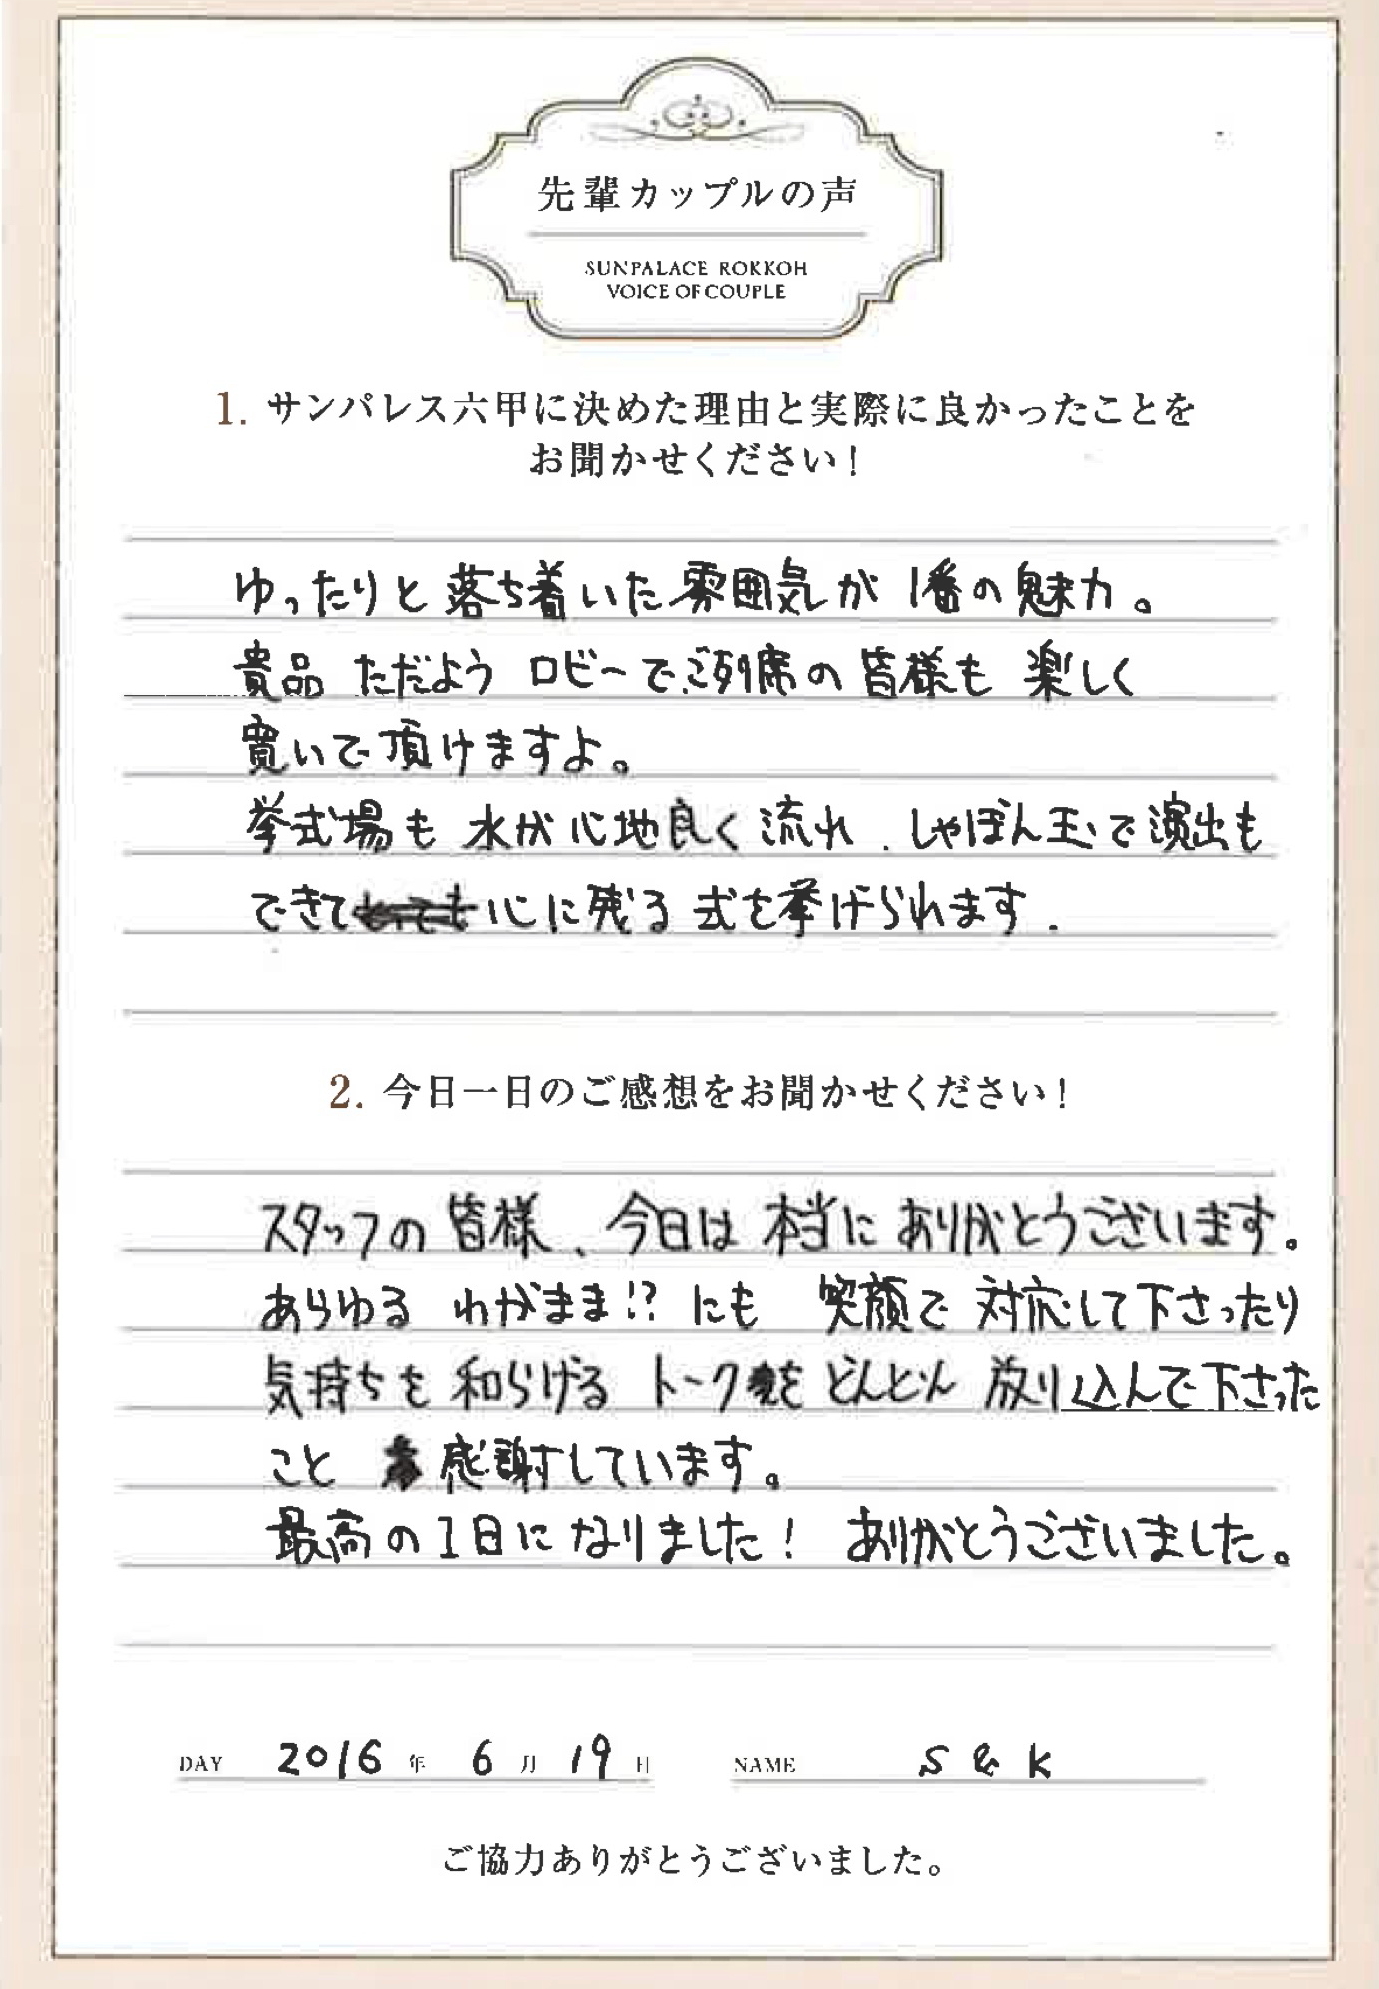 先輩カップルの声
SUNPALACE ROKKOH
VOICE OF COUPLE
1. サンパレス六甲に決めた理由と実際に良かったことを
お聞かせください！
ゆったりと落ち着いた雰囲気が1番の魅力。
貴品 ただよう ロビーでご列席の皆様も 楽しく
寛いで頂けますよ。
挙式場も 水が心地良く流れ、しゃぼん玉で演出も
できて心に残る 式を挙げられます.
2. 今日一日のご感想をお聞かせください！
スタッフの 皆様、今日は 本当に ありがとうございます。
あらゆる わがまま!? にも 笑顔で 対応して下さったり
気持ちを 和らげる トークを どんどん 放り込んで下さった
こと 感謝しています。
最高の1日に なりました! ありがとうございました。
DAY 2016年 6月 19日 NAME S & K
ご協力ありがとうございました。